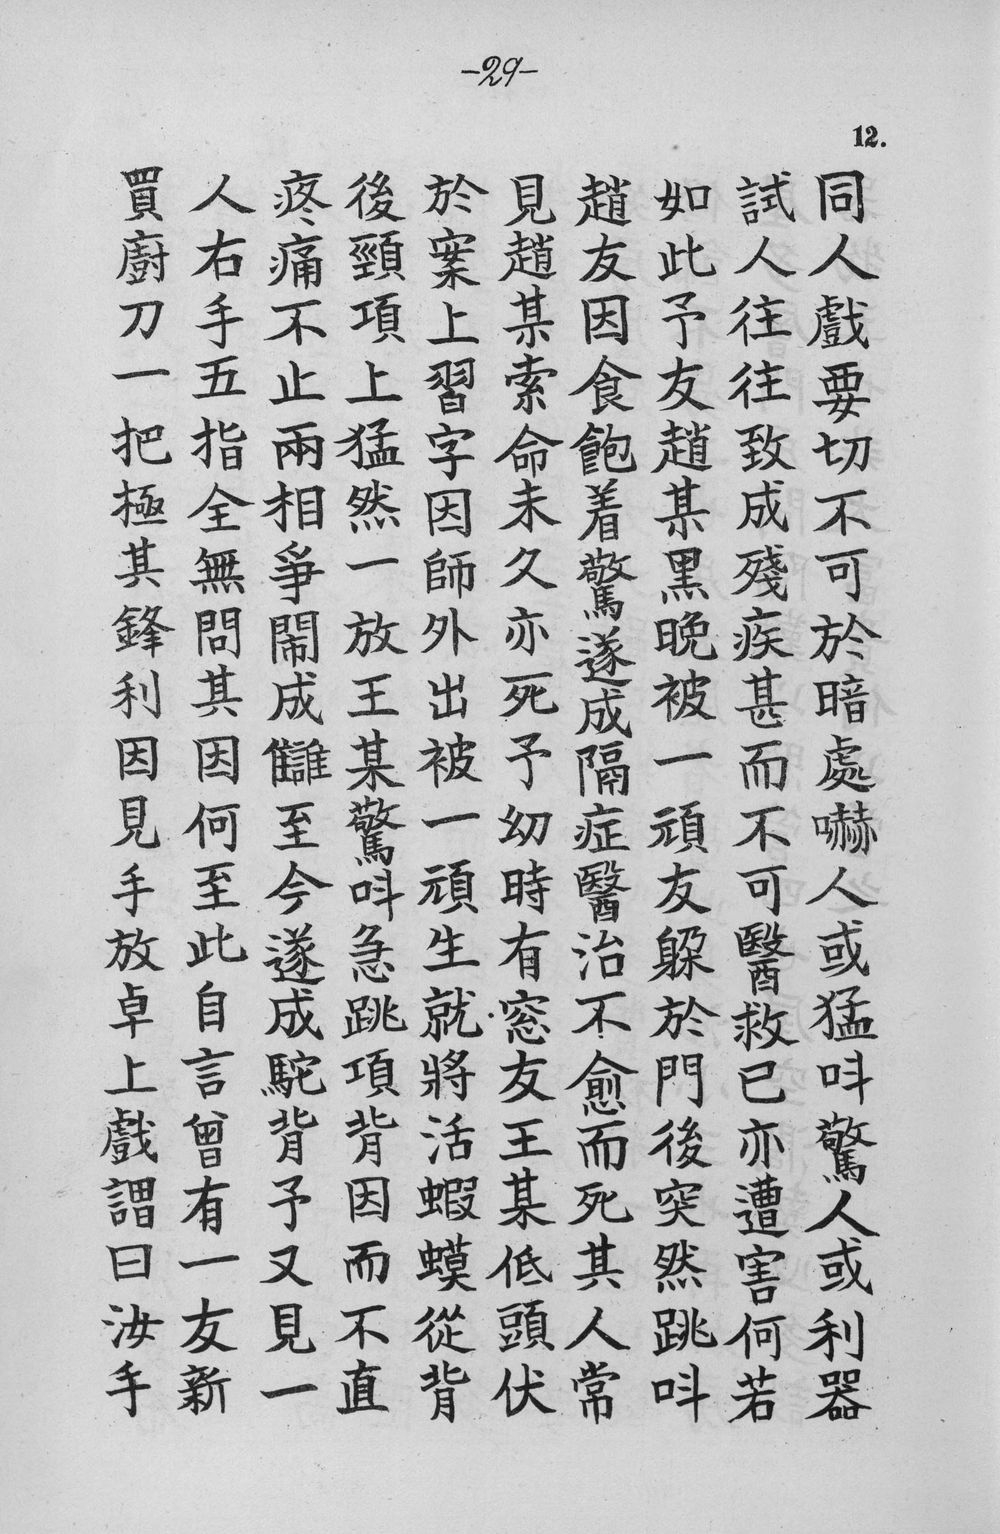 -29-
12.
同人戲耍切不可於暗處嚇人或猛呌驚人或利器
試人往往致成殘疾甚而不可醫救已亦遭害何若
如此予友趙某黑晚被一頑友躱於門後突然跳呌
趙友因食飽着驚遂成隔症醫治不愈而死其人常
見趙某索命未久亦死予幼時有窓友王某低頭伏
於案上習字因師外出被一頑生就將活蝦蟆從背
後頸項上猛然一放王某驚呌急跳項背因而不直
疼痛不止兩相爭鬧成讎至今遂成駝背予又見一
人右手五指全無問其因何至此自言曾有一友新
買廚刀一把極其鋒利因見手放卓上戲謂曰汝手